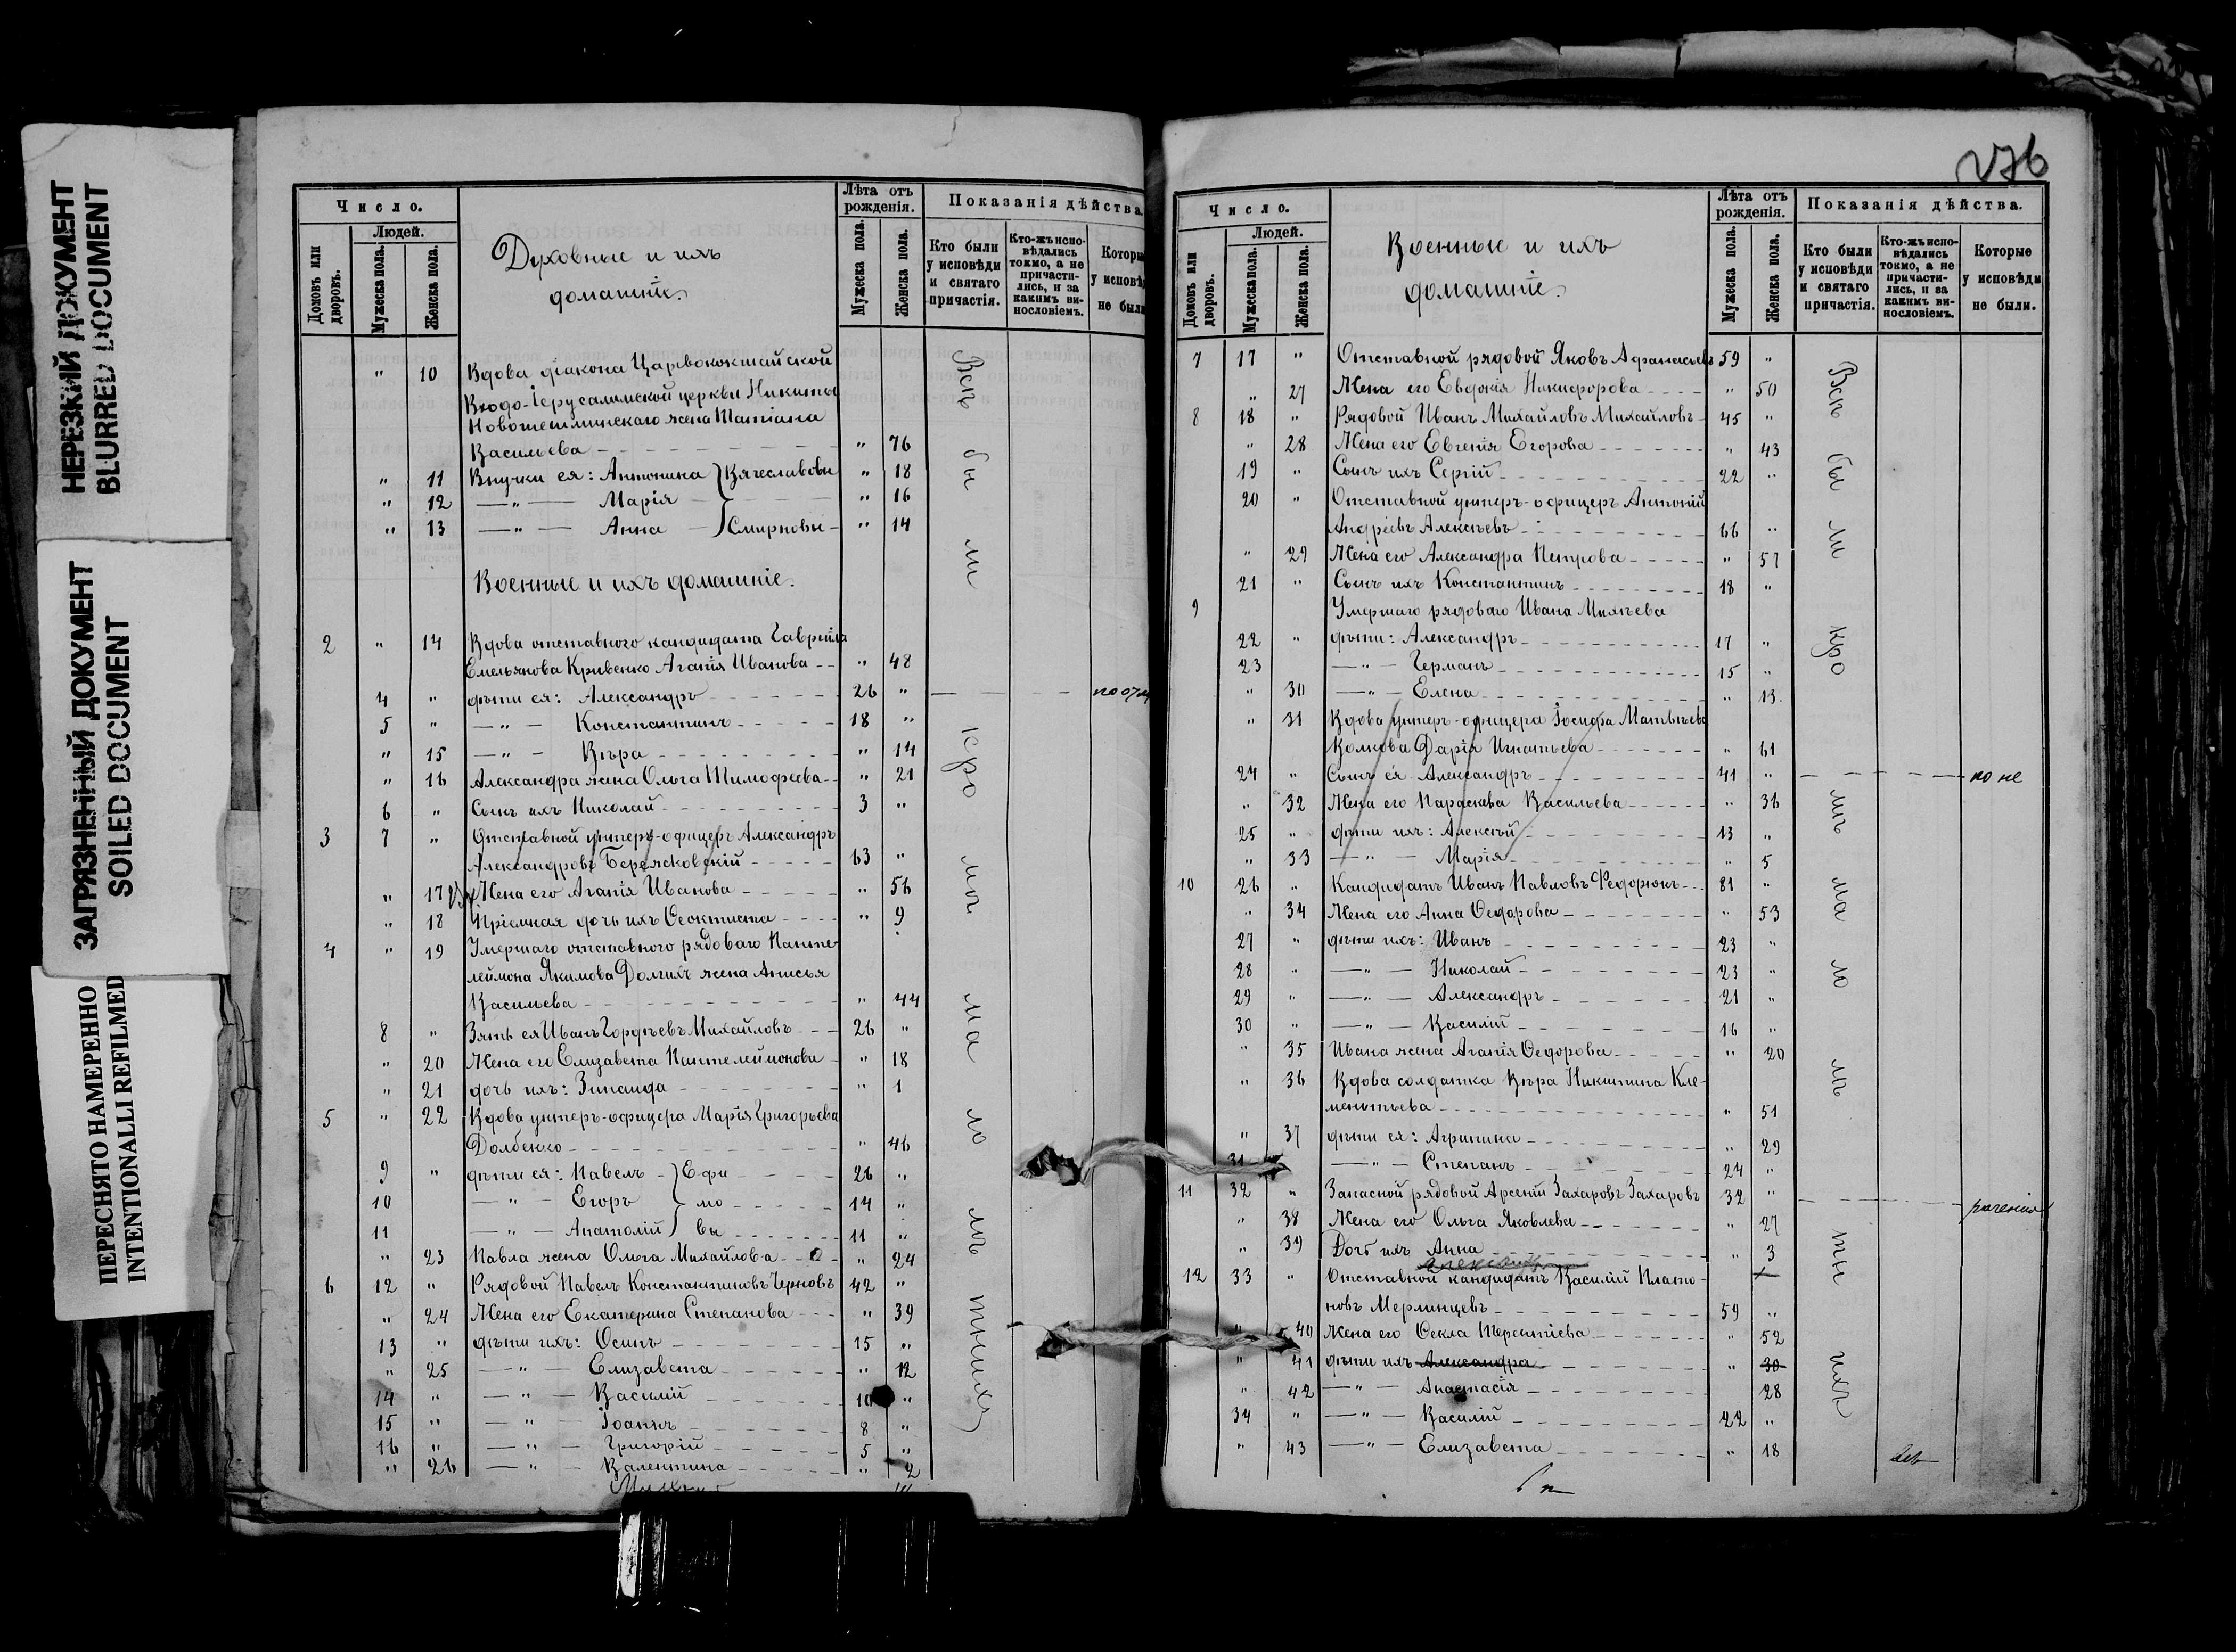 НЕРЕЗКИЙ ДОКУМЕНТ
BLURRED DOCUMENT
ЗАГРЯЗНЕННЫЙ ДОКУМЕНТ
SOILED DOCUMENT
ПЕРЕСНЯТО НАМЕРЕННО
INTENTIONALLI REFILMED
Число.
Людей.
Домовъ или дворовъ.
Мужеска пола.
Женска пола.
Духовные и ихъ
домашніе.
Лѣта отъ рожденія.
Мужеска пола.
Женска пола.
Показанія дѣйства.
Кто были у исповѣди и святаго причастія.
Кто-жъ исповѣдались токмо, а не причастились, и за какимъ винословіемъ.
Которые у исповѣди не были
" 10 Вдова діакона Царевококшайской
Входо-Іерусалимской церкви Никиты
Новотешлинскаго жена Татіана
Васильева " 76
" 11 Внучки ея: Антонина Вячеславовы " 18
" 12 —"— Марія " 16
" 13 —"— Анна Смирновы " 14
Военные и ихъ домашніе.
2 " 14 Вдова отставного кандидата Гавріила
Емельянова Кривенко Агапія Иванова " 48
4 " дѣти ея: Александръ 26 "
5 " —"— Константинъ 18 "
" 15 —"— Вѣра " 14
" 16 Александра жена Ольга Тимофеева " 21
6 " Сынъ ихъ Николай 3 "
3 7 " Отставной унтеръ-офицеръ Александръ
Александровъ Бережковскій 63 "
" 17 Жена его Агапія Иванова " 56
" 18 Пріемная дочь ихъ Ѳеоктиста " 9
4 " 19 Умершаго отставного рядоваго Панте-
леймона Якимова Долгихъ жена Анисья
Васильева " 44
8 " Зять ея Иванъ Гордѣевъ Михайловъ 26 "
" 20 Жена его Елизавета Пантелеймонова " 18
" 21 дочь ихъ: Зинаида " 1
5 " 22 Вдова унтеръ-офицера Марія Григорьева
Долбенко " 46
9 " дѣти ея: Павелъ Ефи 26 "
10 —"— Егоръ мо 14 "
11 —"— Анатолій вы 11 "
" 23 Павла жена Ольга Михайлова " 24
6 12 " Рядовой Павелъ Константиновъ Черновъ 42 "
" 24 Жена его Екатерина Степанова " 39
13 " дѣти ихъ: Осипъ 15 "
" 25 —"— Елизавета " 12
14 " —"— Василій 10 "
15 " —"— Іоаннъ 8 "
16 " —"— Григорій 5 "
" 26 —"— Валентина " 2
Всѣ бы ли кро мѣ ма ло лѣ тнихъ
276
Число.
Людей.
Домовъ или дворовъ.
Мужеска пола.
Женска пола.
Военные и ихъ
домашніе.
Лѣта отъ рожденія.
Мужеска пола.
Женска пола.
Показанія дѣйства.
Кто были у исповѣди и святаго причастія.
Кто-жъ исповѣдались токмо, а не причастились, и за какимъ винословіемъ.
Которые у исповѣди не были.
7 17 " Отставной рядовой Яковъ Афанасьевъ 59 "
" 27 Жена его Евдокія Никифорова " 50
8 18 " Рядовой Иванъ Михайловъ Михайловъ 45 "
" 28 Жена его Евгенія Егорова " 43
19 " Сынъ ихъ Сергій 22 "
20 " Отставной унтеръ-офицеръ Антоній
Андреевъ Алексѣевъ 66 "
" 29 Жена его Александра Петрова " 57
21 " Сынъ ихъ Константинъ 18 "
9 Умершаго рядоваго Ивана Михѣева
22 " дѣти: Александръ 17 "
23 —"— Германъ 15 "
" 30 —"— Елена " 13.
" 31 Вдова унтеръ-офицера Іосифа Матвѣева
Волкова Дарія Игнатьева " 61
24 " Сынъ ея Александръ 41 " по не
" 32 Жена его Параскева Васильева " 36
25 " дѣти ихъ: Алексѣй 13 "
" 33 —"— Марія " 5
10 26 " Кандидатъ Иванъ Павловъ Федорюкъ 81 "
" 34 Жена его Анна Ѳедорова " 53
27 " дѣти ихъ: Иванъ 23 "
28 " —"— Николай 23 "
29 " —"— Александръ 21 "
30 " —"— Василій 16 "
" 35 Ивана жена Агапія Ѳедорова " 20
" 36 Вдова солдатка Вѣра Никитина Кле-
ментьева " 51
" 37 дѣти ея: Агрипина " 29
31 —"— Степанъ 24 "
11 32 " Запасной рядовой Арсеній Захаровъ Захаровъ 32 "
" 38 Жена его Ольга Яковлева " 27
" 39 Дочь ихъ Анна " 3
12 33 " Отставной кандидатъ Василій Плато-
новъ Мерлинцевъ 59 "
" 40 Жена его Ѳекла Терентіева " 52
" 41 дѣти ихъ Александра " 30
" 42 —"— Анастасія 28
34 " —"— Василій 22 "
" 43 —"— Елизавета " 18
Всѣ бы ли кро мѣ ма ло лѣ тн ихъ